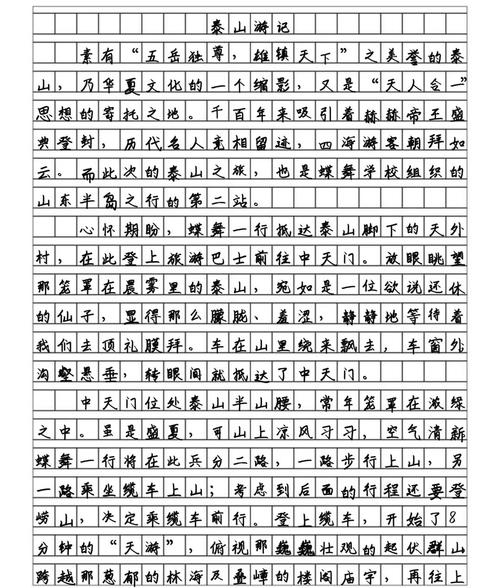 泰山游记
素有“五岳独尊，雄镇天下”之美誉的泰
山，乃华夏文化的一个缩影，又是“天人合一”
思想的寄托之地。千百年来吸引着赫赫帝王盛
典登封，历代名人竞相留迹，四海游客朝拜如
云。而此次的泰山之旅，也是蝶舞学校组织的
山东半岛之行的第二站。
心怀期盼，蝶舞一行抵达泰山脚下的天外
村，在此登上旅游巴士前往中天门。放眼眺望
那笼罩在晨雾里的泰山，宛如是一位欲说还休
的仙子，显得那么朦胧、羞涩，静静地等待着
我们去顶礼膜拜。车在山里绕来飘去，车窗外
沟壑悬垂，转眼间就抵达了中天门。
中天门位处泰山半山腰，常年笼罩在浓绿
之中。虽是盛夏，可山上凉风习习，空气清新
蝶舞一行将在此兵分二路，一路步行上山，另
一路乘坐缆车上山；考虑到后面的行程还要登
崂山，决定乘缆车前行。登上缆车，开始了8
分钟的“天游”，俯视那巍巍壮观的起伏群山
跨越那葱郁的林海及叠嶂的楼阁庙宇，再往上